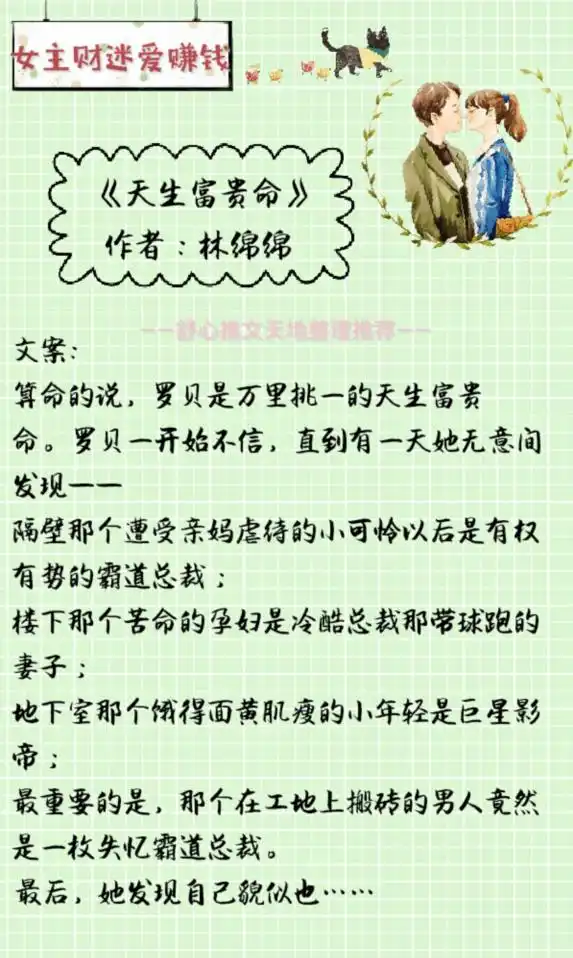 女主财迷爱赚钱
《天生富贵命》
作者：林绵绵
——舒心推文天地整理推荐——
文案：
算命的说，罗贝是万里挑一的天生富贵
命。罗贝一开始不信，直到有一天她无意间
发现——
隔壁那个遭受亲妈虐待的小可怜以后是有权
有势的霸道总裁；
楼下那个苦命的孕妇是冷酷总裁那带球跑的
妻子；
地下室那个饿得面黄肌瘦的小年轻是巨星影
帝；
最重要的是，那个在工地上搬砖的男人竟然
是一枚失忆霸道总裁。
最后，她发现自己貌似也……